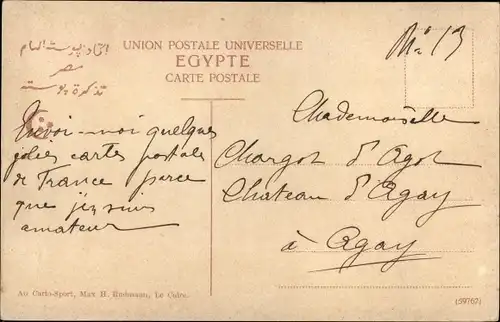 UNION POSTALE UNIVERSELLE
EGYPTE
CARTE POSTALE
اتحاد بوستة العام
مصر
تذكرة بوستة
Nº 13
Envoi-moi quelques
jolies cartes postales
de France parce
que j'en suis
amateur
Mademoiselle
Chargot d'Agot
Chateau d'Agay
à Agay
Au Carto-Sport, Max H. Rudmann, Le Caire.
(59767)